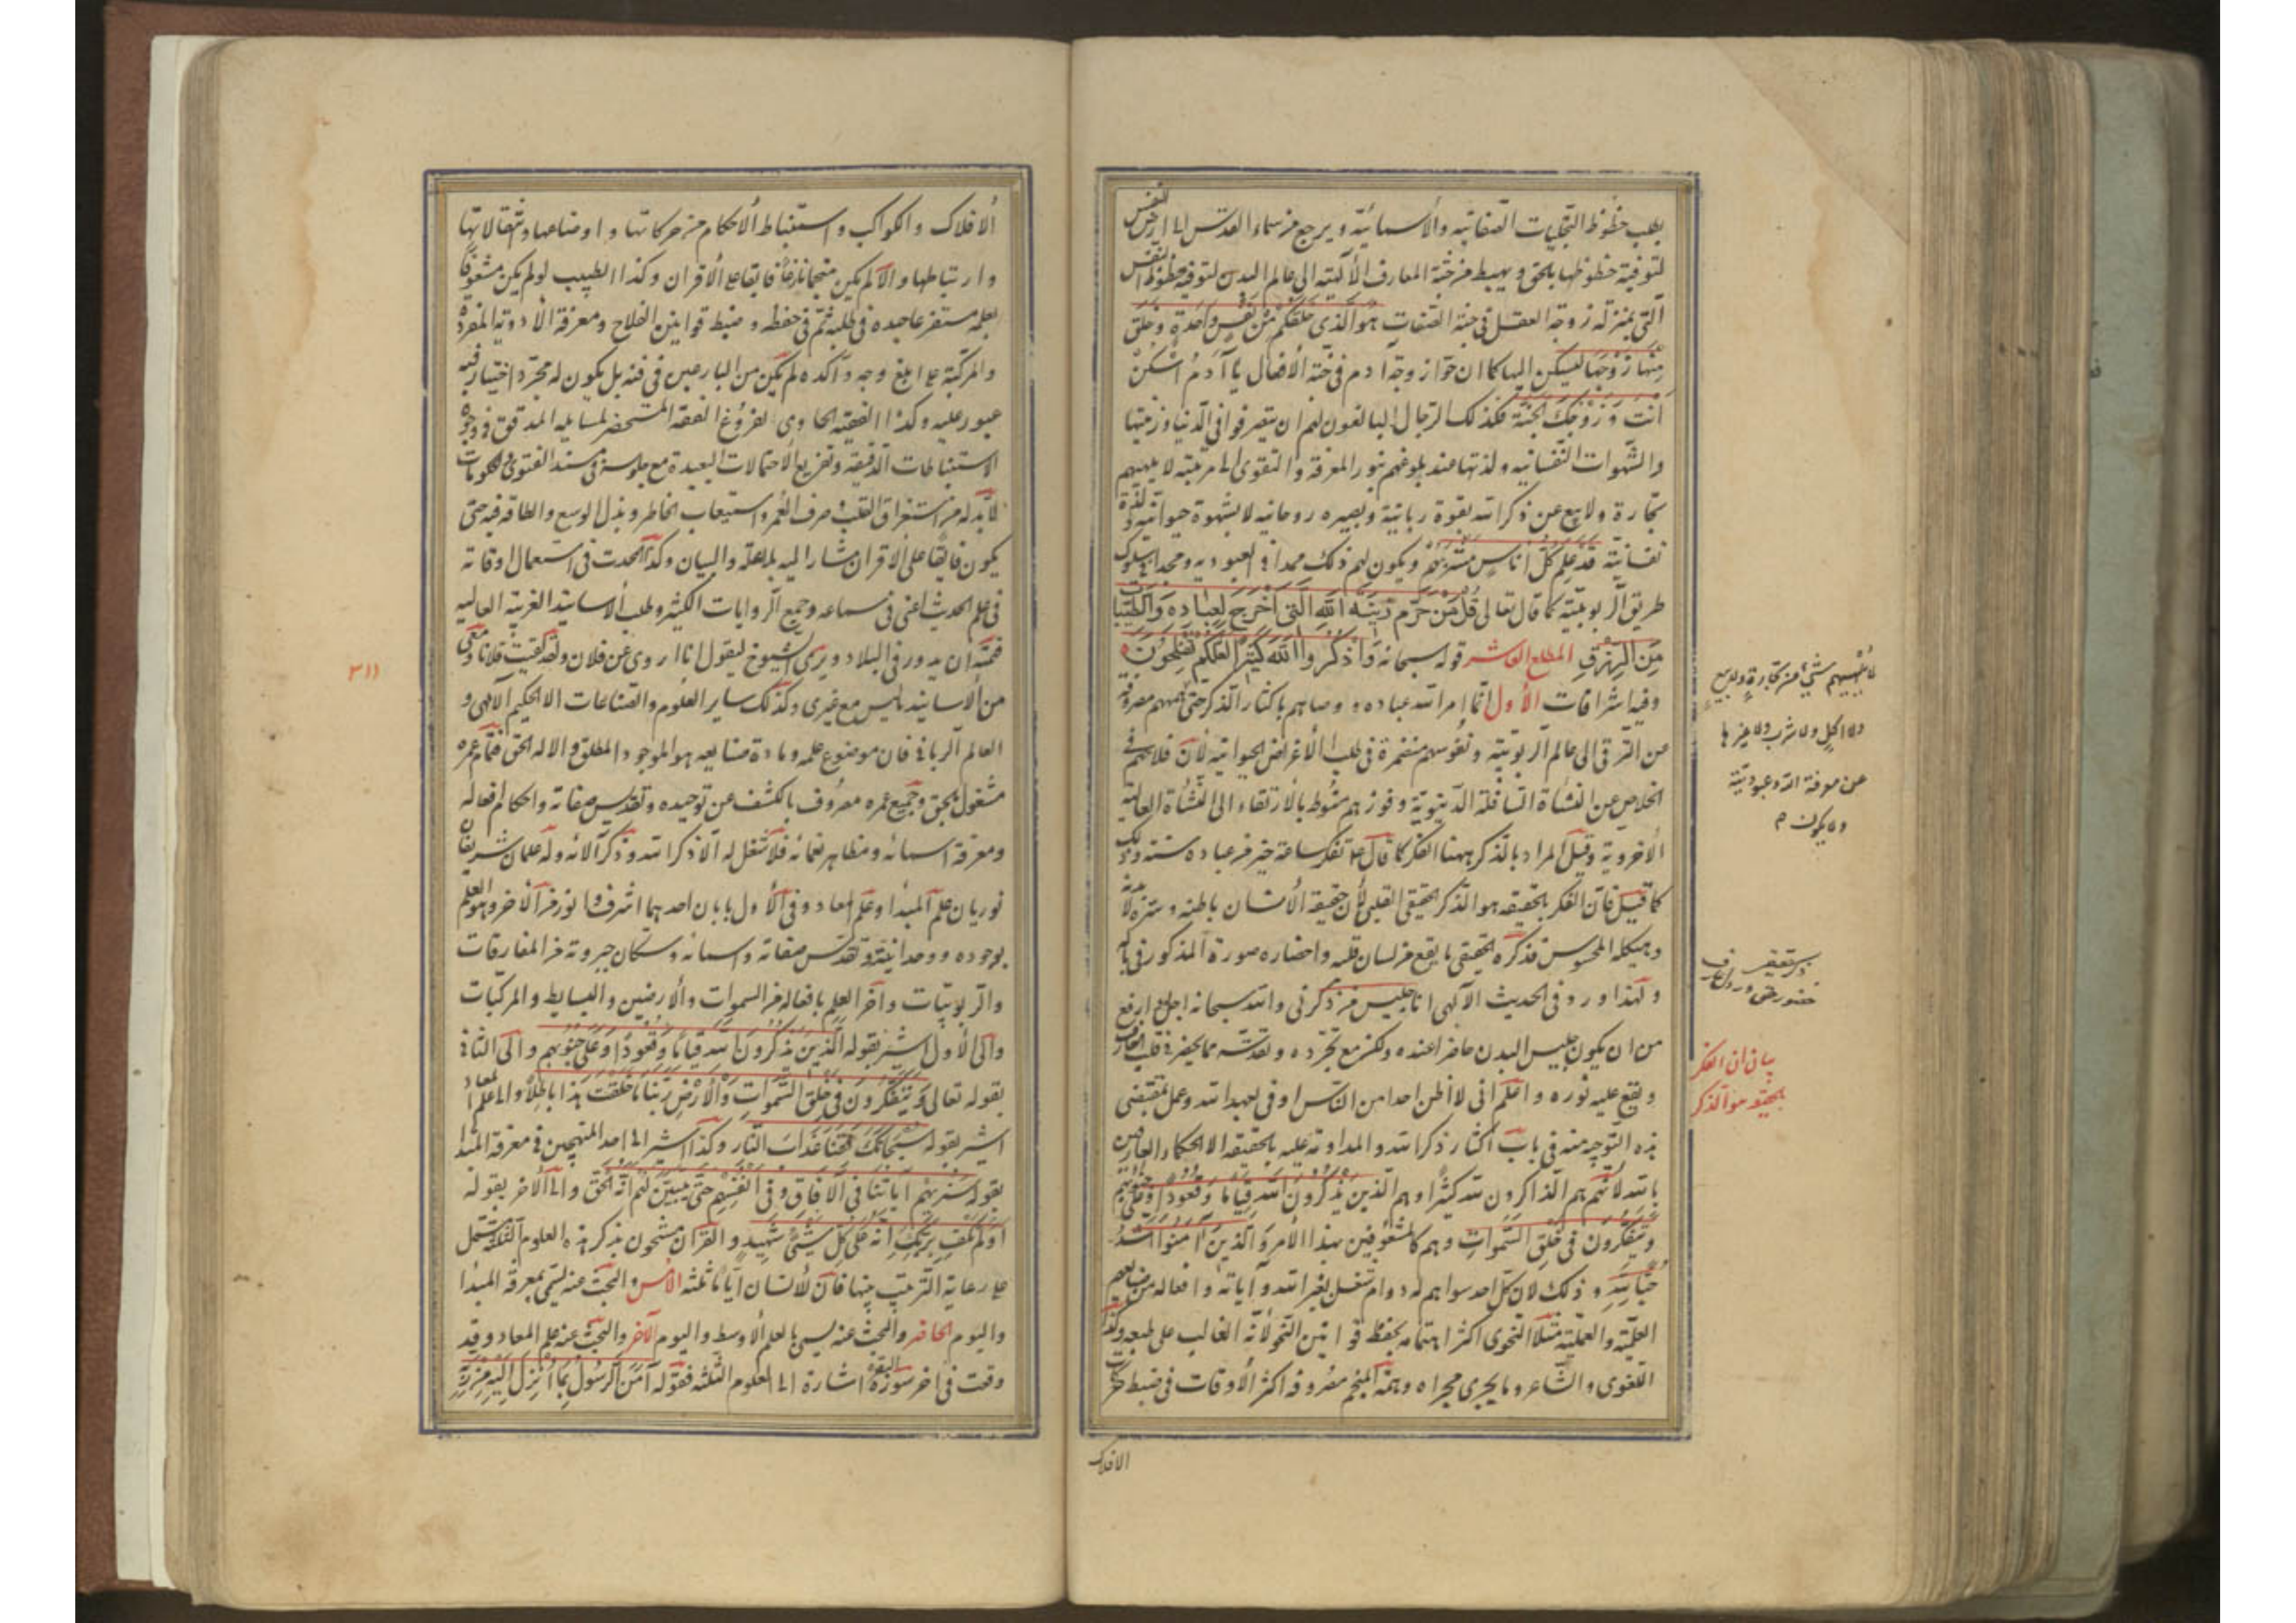 يطلب حظوظ التجليات الصفاتية والأسمائية ويرجع من سماء القدس الى ارض النفس
لتوفية حظوظها بالحق ويهبط من جنة المعارف الالهية الى عالم البدن لتوفية حظوظ النفس
التي بمنزلة زوجة العقل في جنة الصفات هو الذي خلقكم من نفس واحدة وخلق
منها زوجها ليسكن اليها كما ان حوا زوجة ادم في جنة الأفعال يا آدم اسكن
أنت وزوجك الجنة فكذلك الرجال البالغون لهم ان يتصرفوا في الدنيا وزينتها
والشهوات النفسانية ولذتها عند بلوغهم بنور المعرفة والتقوى الى مرتبة لا يلهيهم
تجارة ولا بيع عن ذكر الله بقوة ربانية وبصيره روحانيه لا بشهوة حيوانية ولذة
نفسانية قد علم كل أناس مشربهم ويكون لهم ذلك ممدا في العبوديه ومجدا في سلوك
طريق الربوبية كما قال تعالى قل من حرم زينة الله التي أخرج لعباده والطيبات
من الرزق المطلع العاشر قوله سبحانه واذكروا الله كثيرا لعلكم تفلحون
وفيه اشراقات الأول انما امر الله عباده ووصاهم باكثار الذكر حتى هممهم مصروفة
عن الترقى الى عالم الربوبية ونفوسهم منغمرة في طلب الأغراض الحيوانيه لأن فلاحهم في
الخلاص عن النشأة السافلة الدنيوية وفوزهم منوط بالارتقاء الى النشأة العالية
الأخروية وقيل المراد بالذكر ههنا الفكر كما قال ع تفكر ساعة خير من عباده سنة وذلك
كما قيل فان الفكر بالحقيقه هو الذكر الحقيقى القلبى لأن حقيقة الأنسان باطنه وسره لا بدنه
وهيكله المحسوس فذكره الحقيقى ما يقع من لسان قلبه واحضاره صورة المذكور في باله
ولهذا ورد في الحديث الآلهى انا جليس من ذكرنى والله سبحانه اجل وارفع
من ان يكون جليس البدن حاضرا عنده ولكن مع تجرده وتقدسه مما يحضر في قلب العارف
ويقع عليه نوره واعلم انى لا اظن احدا من الناس اوفى بعهد الله وعمل بمقتضى
هذه التوجه منه في باب اكثار ذكر الله والمداومة عليه بالحقيقه الا الحكماء العارفين
بالله لأنهم هم الذاكرون لله كثيرا وهم الذين يذكرون الله قياما وقعودا وعلى جنوبهم
ويتفكرون في خلق السموات وهم كالمشعوفين بهذا الأمر والذين آمنوا اشد
حبا لله وذلك لان كل احد سواهم له دوام شغل بغير الله وآياته وافعاله من صنايعهم
العلمية والعملية مثلا النحوى اكثر اهتمامه بحفظ قوانين النحو لأنه الغالب على طبعه وكذا
اللغوى والشاعر وما يجرى مجراه وهمة المنجم مصروفه اكثر الأوقات في ضبط حركات
الافلاك
لا يلهيهم شيء من تجارة ولا بيع
ولا اكل ولا شرب ولا غيرها
عن معرفة الله وعبوديته
ولا يكون م
بيان ان الفكر
بالحقيقة هو الذكر
الأفلاك والكواكب واستنباط الأحكام من حركاتها واوضاعها وانتقالاتها
وارتباطها والا لم يكن منجما نازعا فايقا على الأقران وكذا الطبيب لو لم يكن مشعوفا
بعلمه مستفرغا جهده في طلبه ثم في حفظه وضبط قوانين العلاج ومعرفة الأدوية المفردة
والمركبة على ابلغ وجه وآكده لم يكن من البارعين في فنه بل يكون له مجرد اختيار فيه
عبور عليه وكذا الفقيه الحاوى لفروع الفقه المستحضر لمسايله المدقق في وجوه
الاستنباطات الدقيقة وتفريع الاحتمالات البعيدة مع جلوسه في مسند الفتوى والحكومات
لا بد له من استغراق القلب وصرف العمر واستيعاب الخاطر وبذل الوسع والطاقه فيه حتى
يكون فايقا على الأقران مشارا اليه والبيان وكذا المحدث في استعمال اوقاته
في علم الحديث اعنى في سماعه وجمع الروايات الكثيره وطلب الأسانيد الغريبة العاليه
فهمته ان يدور في البلاد ويرى الشيوخ ليقول انا اروى عن فلان ولقد لقيت فلانا ومعى
من الأسانيد ما ليس مع غيرى وكذلك ساير العلوم والصناعات الا الحكيم الآلهى و
العالم الربانى فان موضوع علمه ومادة صنايعه هو الموجود المطلق والاله الحق فتمام عمره
مشغول بالحق وجميع عمره مصروف بالكشف عن توحيده وتقديس صفاته واحكام افعاله
ومعرفة اسمائه ومظاهر نعمائه فلا شغل له الا ذكر الله وذكر آلائه وله علمان شريفان
نوريان علم المبدأ وعلم المعاد وفي الأول بابان احدهما اشرف وانور من الآخر وهو العلم
بوجوده ووحدانيته وتقدس صفاته واسمائه وسكان جبروته من المفارقات
والربوبيات وآخر العلم بافعاله من السموات والأرضين والبسايط والمركبات
والى الأول اشير بقوله الذين يذكرون الله قياما وقعودا وعلى جنوبهم والى الثانى
بقوله تعالى ويتفكرون في خلق السموات والأرض ربنا ما خلقت هذا باطلا والى علم المعاد
اشير بقوله سبحانك فقنا عذاب النار وكذا اشير الى احد المنهجين في معرفة المبدا
بقوله سنريهم آياتنا في الآفاق وفي انفسهم حتى يتبين لهم انه الحق والى الآخر بقوله
اولم يكف بربك انه على كل شيء شهيد والقرآن مشحون بذكر هذه العلوم الثلثة مشتمل
على رعاية الترتيب بينها فان للأنسان اياما ثلثه الأمس والبحث عنه يسمى بمعرفة المبدا
واليوم الحاضر والبحث عنه يسمى بالعلم الأوسط واليوم الآخر والبحث عنه علم المعاد وقد
وقعت في اخر سورة البقره اشارة الى العلوم الثلثه فقوله آمن الرسول بما أنزل اليه من ربه
٣١١